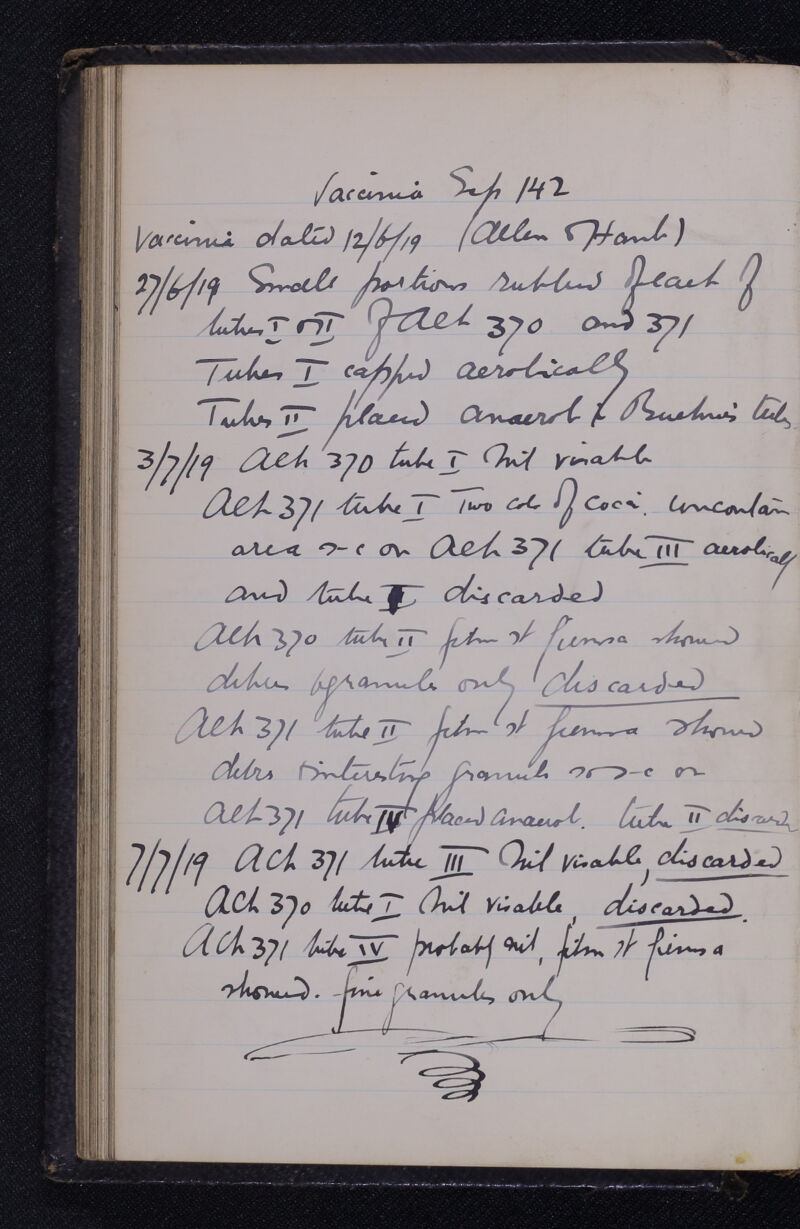 Vaccinia Exp 142
Vaccinia dated 12/6/19 (Allen & Hanb)
27/6/19 Small portions rubbed each of
tubes I & II of Ach 370 and 371
Tubes I capped aerobically
Tubes II placed anaerob in tubes
3/7/19 Ach 370 tube I Nil visable
Ach 371 tube I Two cols of cocci. uncontam
area s-c on Ach 371 tube III aerobically
and tube I discarded
Ach 370 tube II film st giemsa showed
debris & granules only discarded
Ach 371 tube II film st giemsa showed
debrs + interesting granules so s-c on
Ach 371 tube IV placed anaerob. tube II discard
7/7/19 Ach 371 tube III Nil visable, discarded
Ach 370 tube I Nil visable, discarded.
Ach 371 tube IV probably nil, film st giemsa
showed. fine granules only